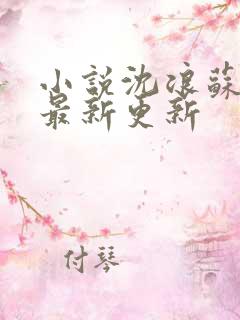 小說沈浪蘇
最新更新
付琴